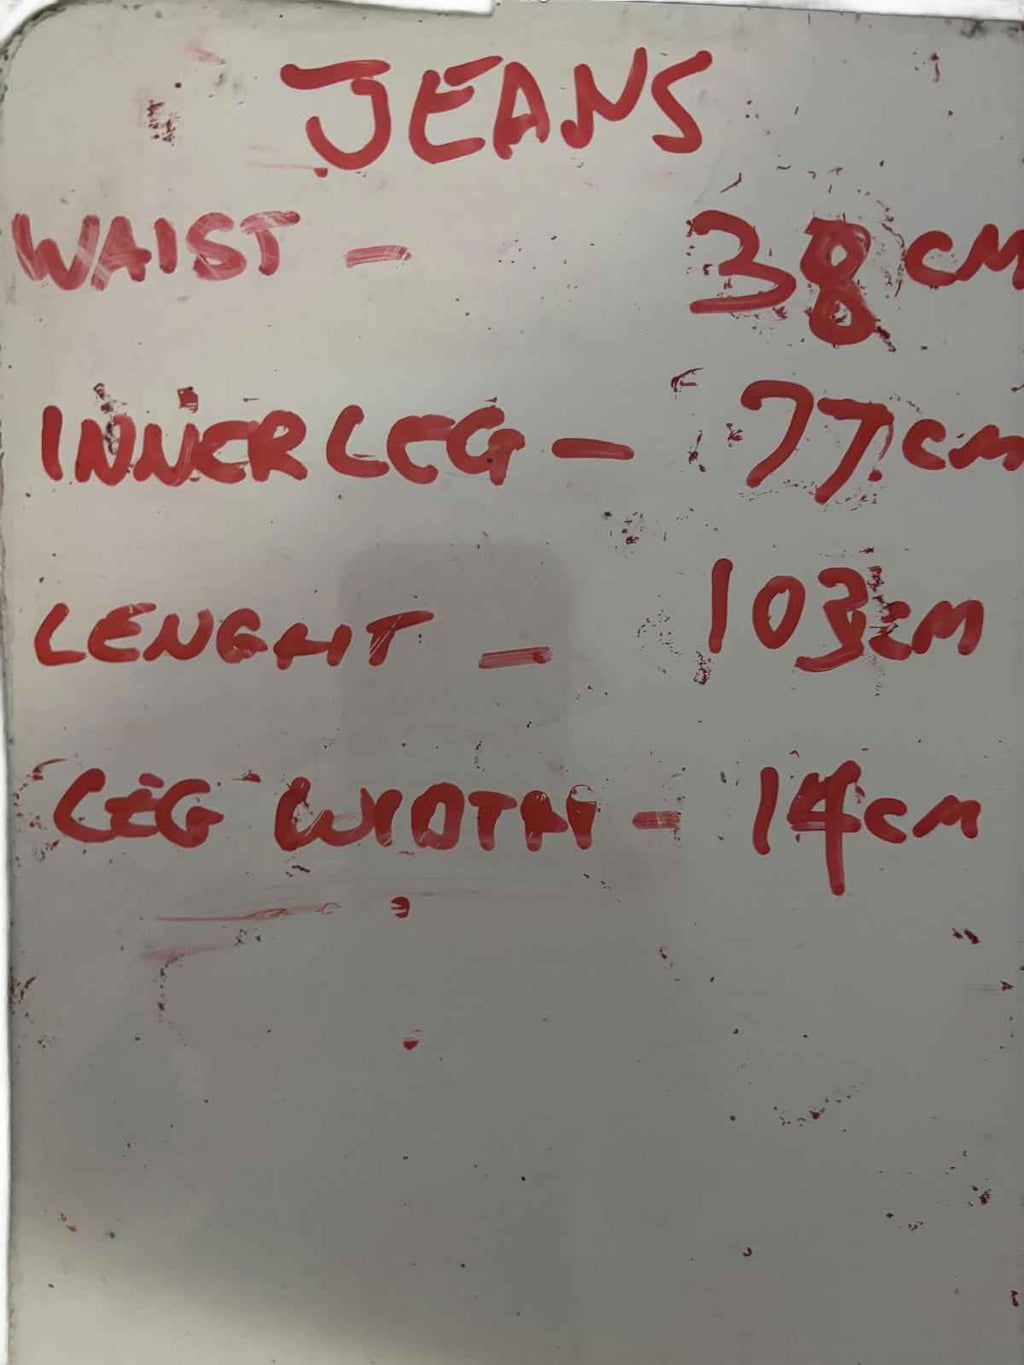 JEANS
WAIST - 38 CM
INNER LEG - 77 CM
LENGHT - 103 CM
LEG WIDTH - 14 CM